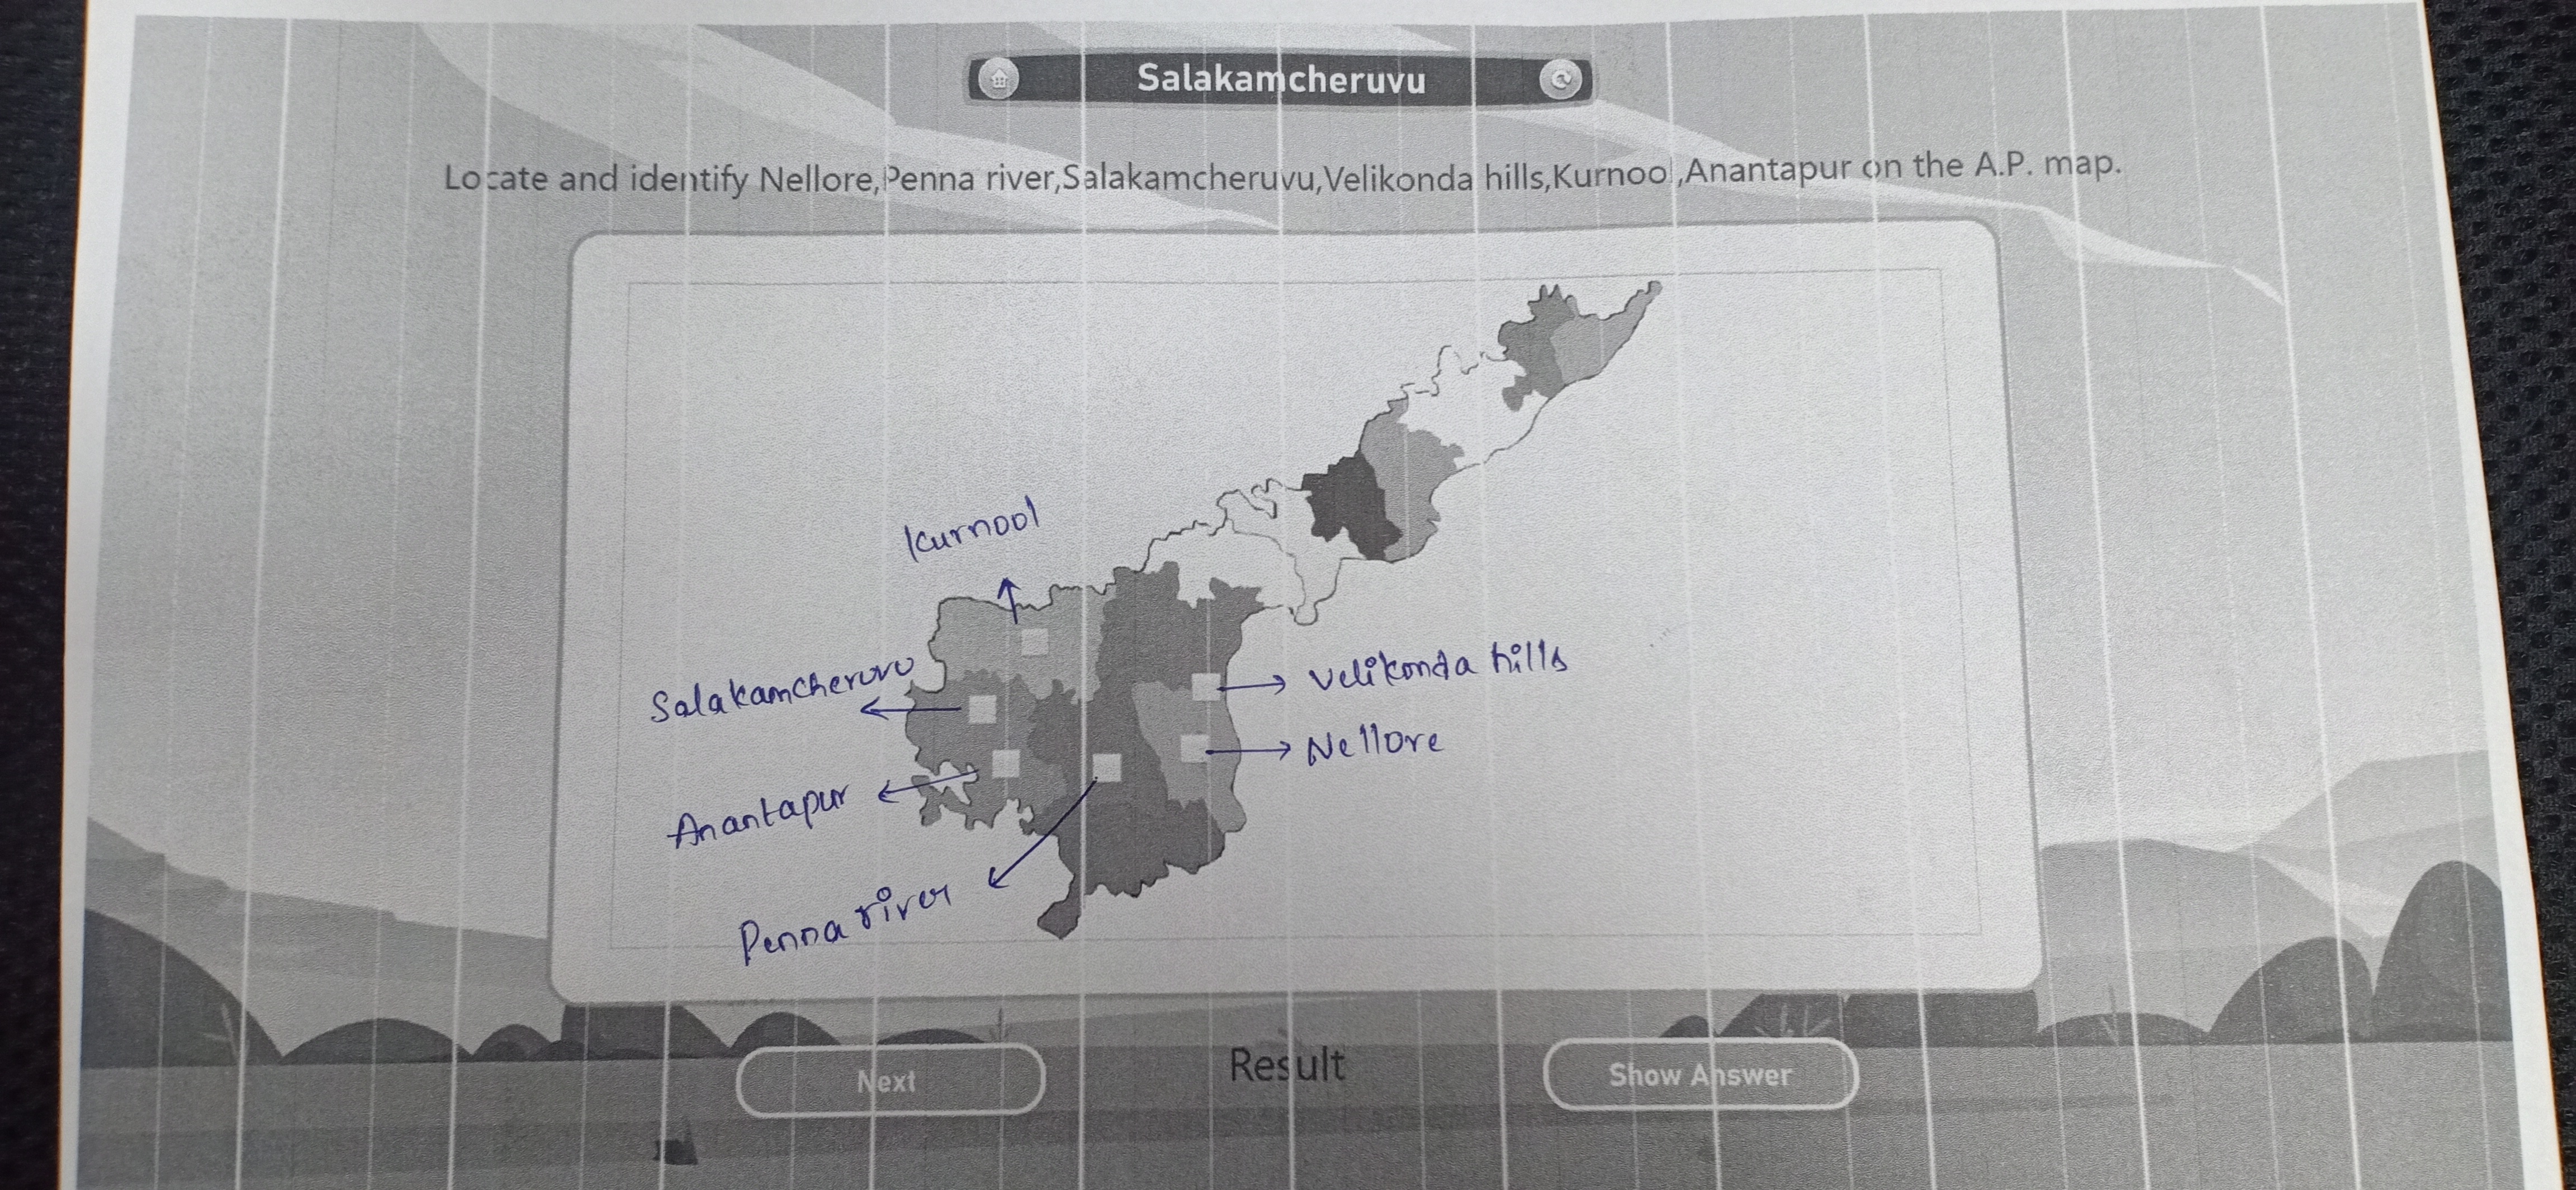 Salakamcheruvu
Locate and identify Nellore,Penna river,Salakamcheruvu,Velikonda hills,Kurnool,Anantapur on the A.P. map.
Kurnool
Salakamcheruvu
Velikonda hills
Nellore
Anantapur
Penna river
Next
Result
Show Answer